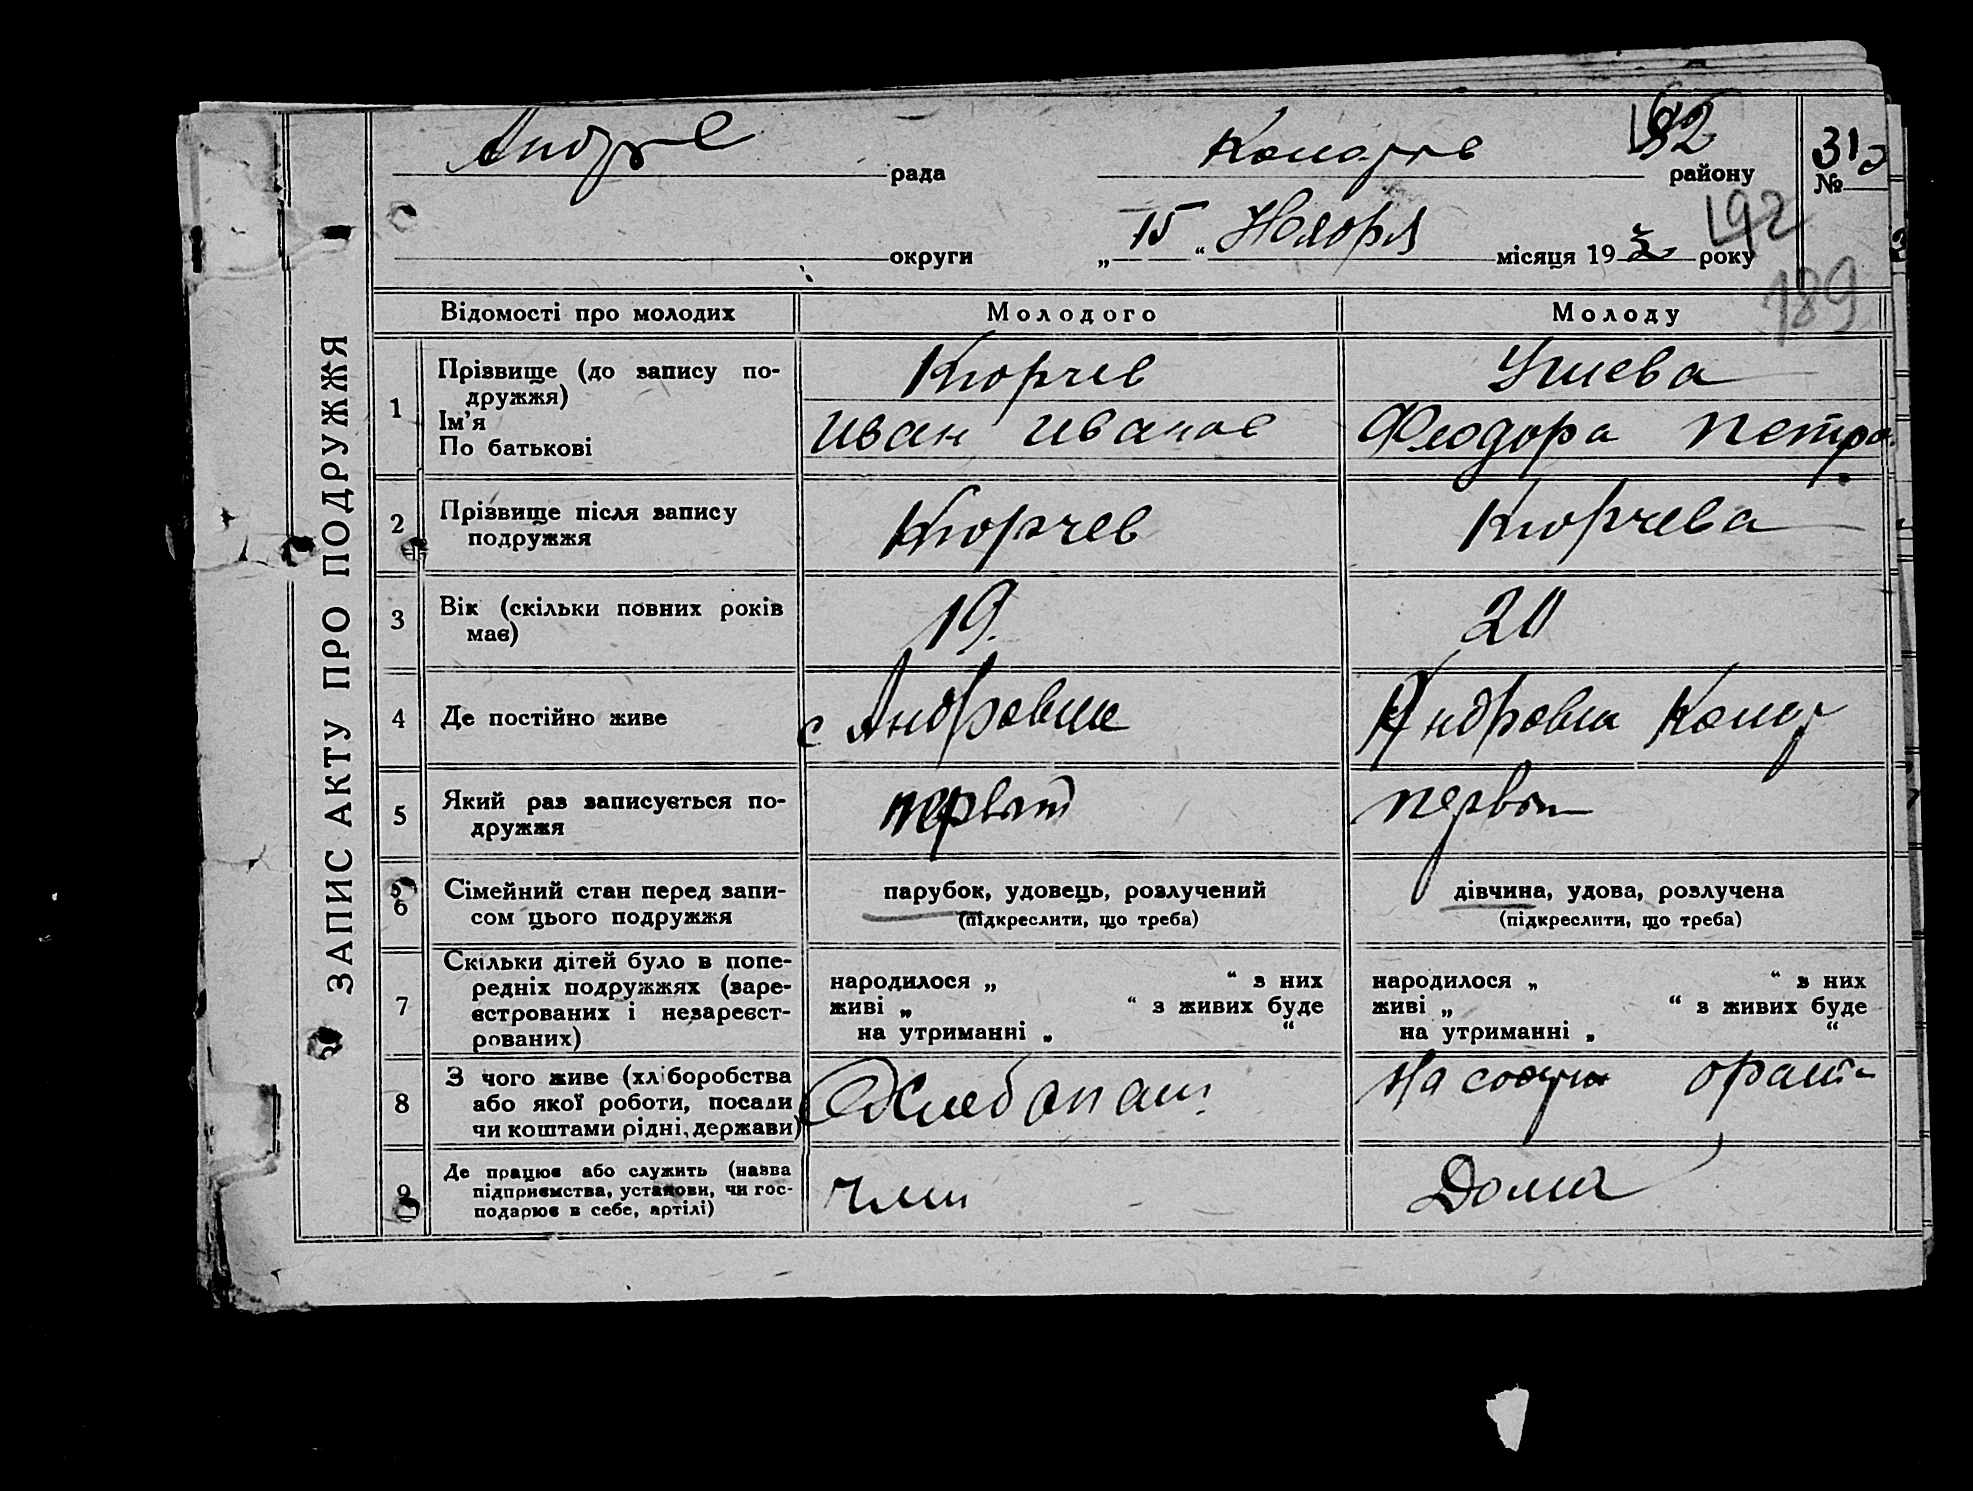 ЗАПИС АКТУ ПРО ПОДРУЖЖЯ
рада
району
31
№
192
округи „ 15 “ Ноября місяця 19 року
189
Відомості про молодих Молодого Молоду
1 Прізвище (до запису по-
дружжя)
Ім'я
По батькові
Кюрчев
Иван Иванов
Феодора Петро
2 Прізвище після запису
подружжя
Кюрчев Кюрчева
3 Вік (скільки повних років
має)
19. 20
4 Де постійно живе
с Андровка Андровка
5 Який раз записується по-
дружжя
первый первый
6 Сімейний стан перед запи-
сом цього подружжя
парубок, удовець, розлучений
(підкреслити, що треба)
дівчина, удова, розлучена
(підкреслити, що треба)
7 Скільки дітей було в попе-
редніх подружжях (заре-
єстрованих і незареєст-
рованих)
народилося „ “ з них
живі „ “ з живих буде
на утриманні „ “
народилося „ “ з них
живі „ “ з живих буде
на утриманні „ “
8 З чого живе (хліборобства
або якої роботи, посади
чи коштами рідні, держави)
Хлебопаш
9 Де працює або служить (назва
підприємства, установи, чи гос-
подарює в себе, артілі)
член Дома